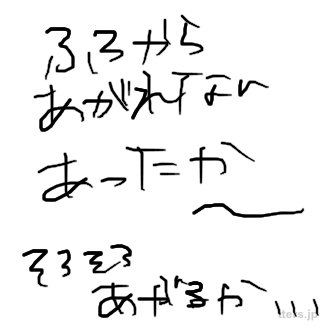 ふろから
あがれてない
あったか〜
そろそろ
あがるか…
ttess.jp